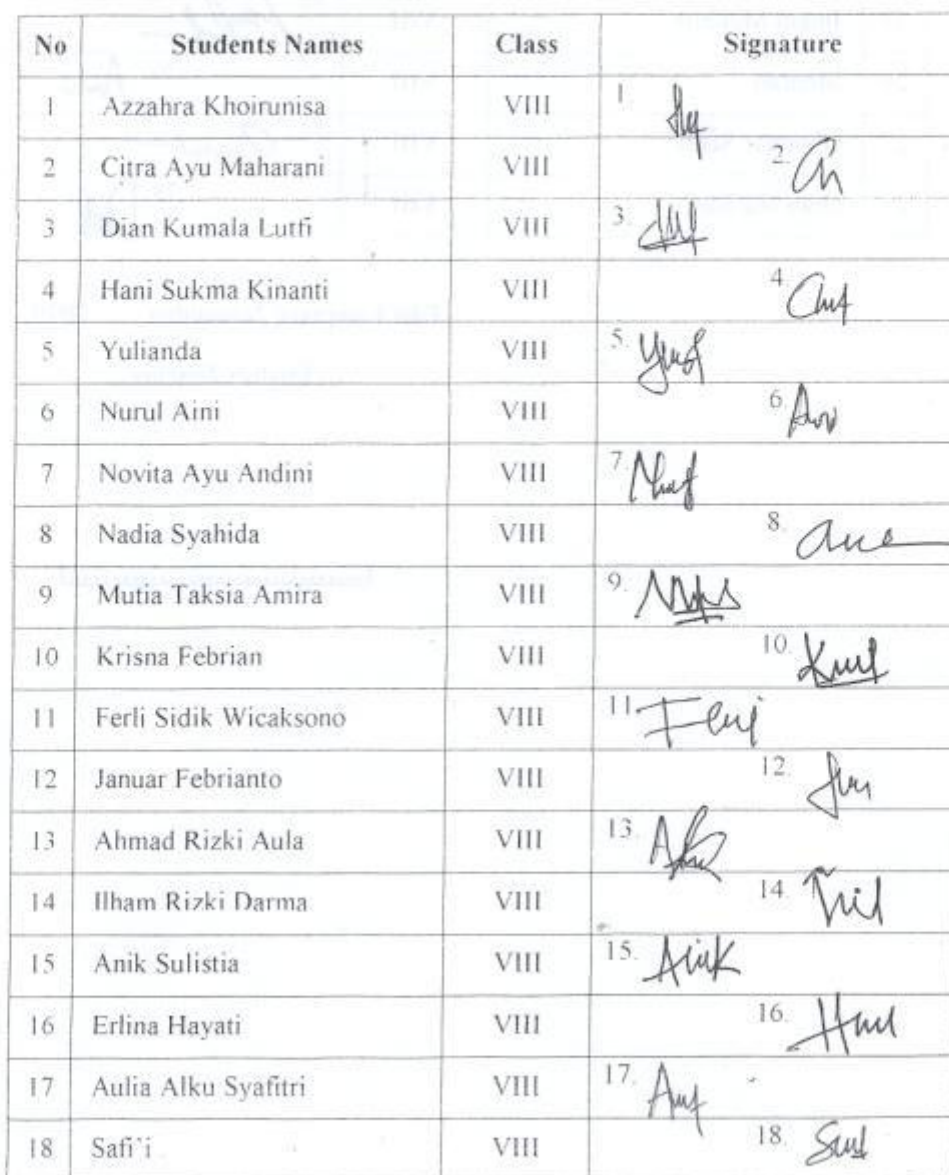 No Students Names Class Signature
1 Azzahra Khoirunisa VIII 1.
2 Citra Ayu Maharani VIII 2.
3 Dian Kumala Lutfi VIII 3.
4 Hani Sukma Kinanti VIII 4.
5 Yulianda VIII 5.
6 Nurul Aini VIII 6.
7 Novita Ayu Andini VIII 7.
8 Nadia Syahida VIII 8.
9 Mutia Taksia Amira VIII 9.
10 Krisna Febrian VIII 10.
11 Ferli Sidik Wicaksono VIII 11.
12 Januar Febrianto VIII 12.
13 Ahmad Rizki Aula VIII 13.
14 Ilham Rizki Darma VIII 14.
15 Anik Sulistia VIII 15.
16 Erlina Hayati VIII 16.
17 Aulia Alku Syafitri VIII 17.
18 Safi'i VIII 18.